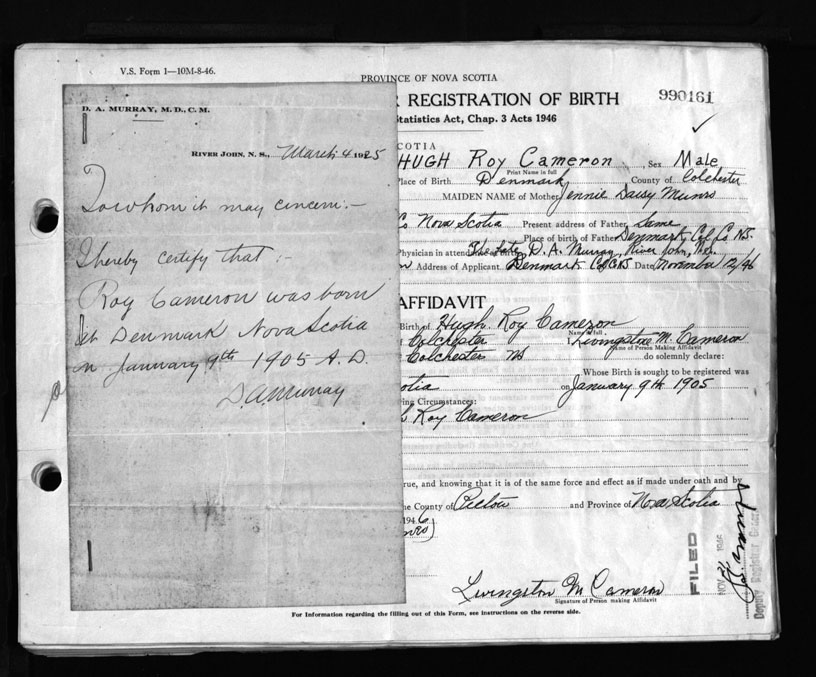 V.S. Form 1—10M-8-46.
PROVINCE OF NOVA SCOTIA
R REGISTRATION OF BIRTH
990161
Statistics Act, Chap. 3 Acts 1946
D. A. MURRAY, M.D., C.M.
RIVER JOHN, N. S., March 4 1925
To whom it may concern:-
I hereby certify that :-
Roy Cameron was born
at Denmark Nova Scotia
on January 9th 1905 A.D.
D.A. Murray
SCOTIA
HUGH Roy Cameron, Sex Male
Print Name in full
Place of Birth Denmark County of Colchester
MAIDEN NAME of Mother Jennie Daisy Munro
Co Nova Scotia Present address of Father Same
Place of birth of Father Denmark, Col Co NS.
Physician in attendance at birth The Late D. A. Murray, River John,
Address of Applicant Denmark Col Co NS Date November 12/46
AFFIDAVIT
Birth of Hugh Roy Cameron
Name in full
Colchester I Livingstone M. Cameron
Name of Person Making Affidavit
Colchester NS do solemnly declare:
Whose Birth is sought to be registered was
Scotia on January 9th 1905
ing Circumstances:
Roy Cameron
rue, and knowing that it is of the same force and effect as if made under oath and by
he County of Pictou and Province of Nova Scotia
1946
FILED
NOV 1946
Deputy Registrar General
Livingston M Cameron
Signature of Person making Affidavit
For Information regarding the filling out of this Form, see instructions on the reverse side.